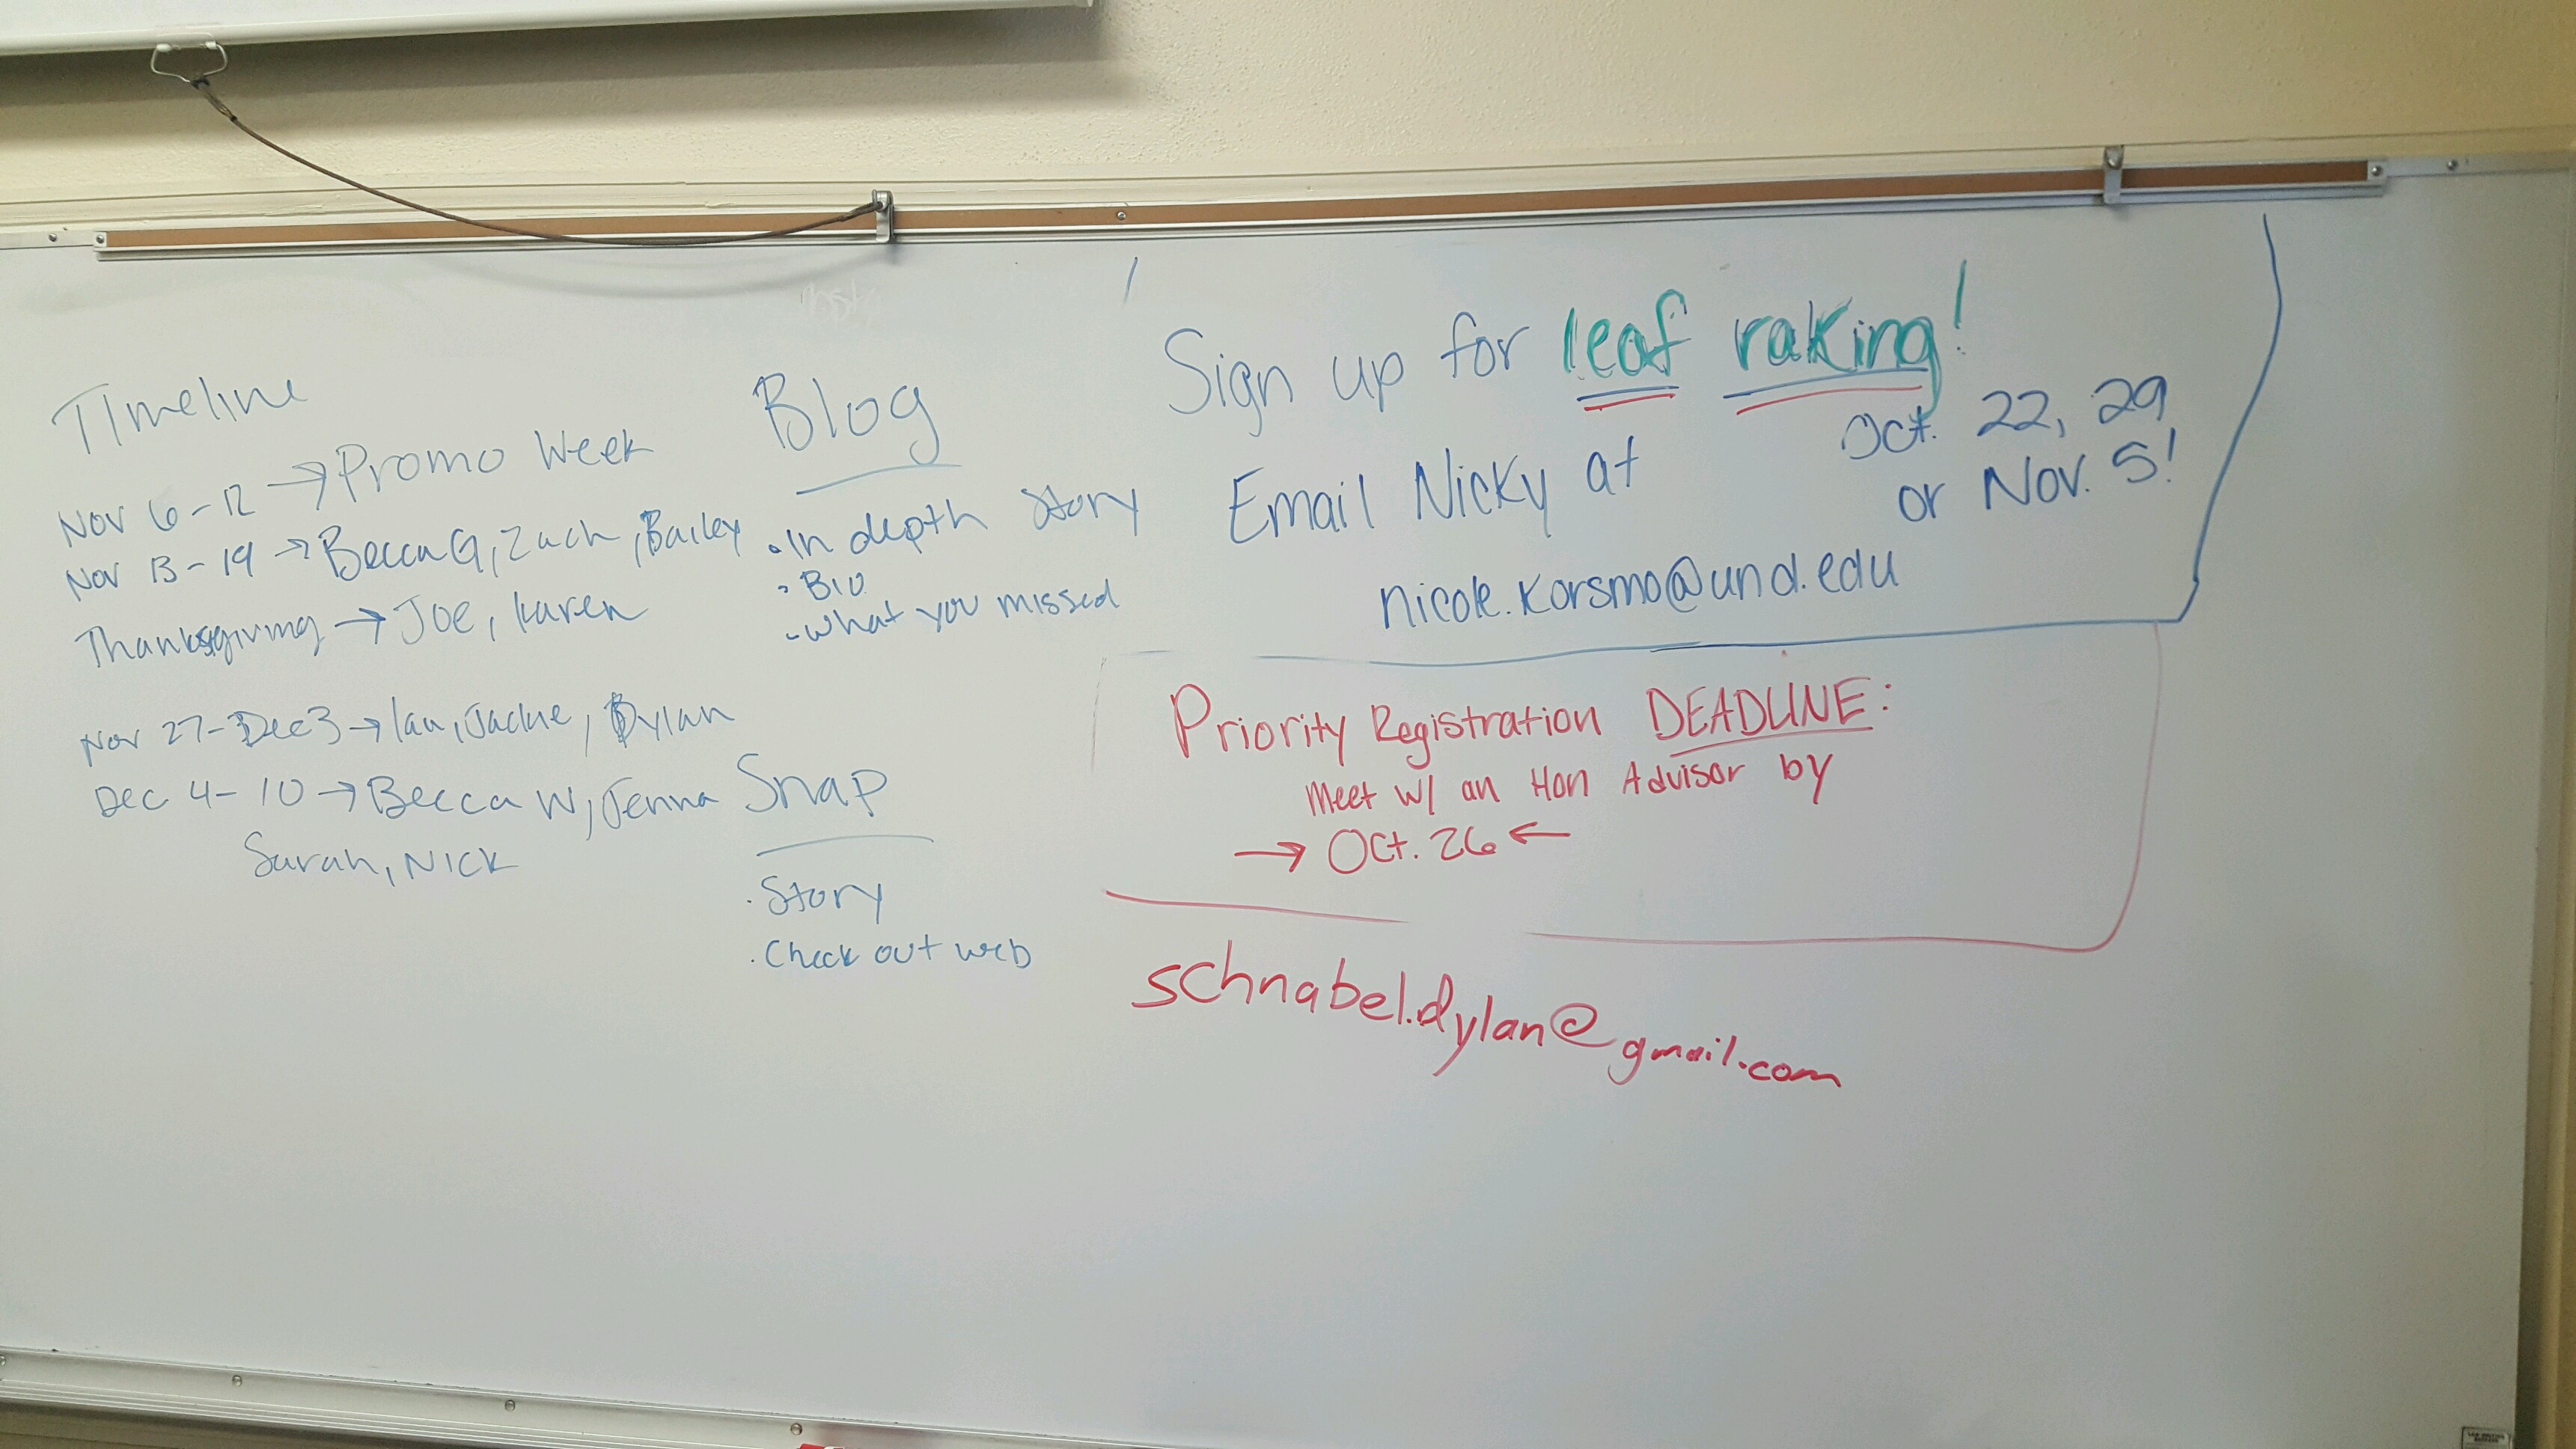 Timeline
Nov 6-12 → Promo Week
Nov 13-19 → Becca G, Zach, Bailey
Thanksgiving → Joe, Karen
Nov 27-Dec 3 → Ian, Jackie, Dylan
Dec 4-10 → Becca W, Jenna
Sarah, Nick
Blog
• In depth Story
• Bio
• What you missed
Snap
• Story
• Check out web
Sign up for leaf raking!
Oct. 22, 29
or Nov. 5!
Email Nicky at
nicole.korsmo@und.edu
Priority Registration DEADLINE:
Meet w/ an Hon Advisor by
→ Oct. 26 ←
schnabel.dylan@gmail.com